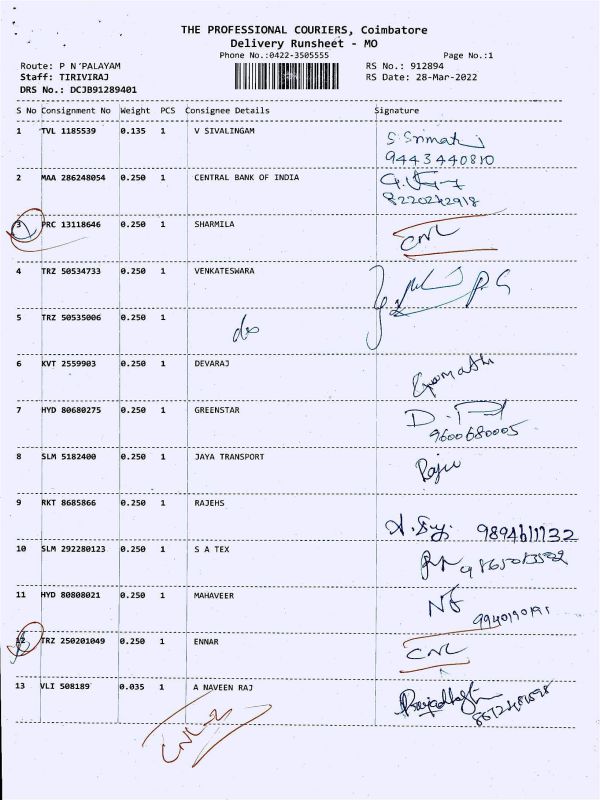 THE PROFESSIONAL COURIERS, Coimbatore
Delivery Runsheet - MO
Phone No.:0422-3505555
Page No.:1
Route: P N PALAYAM
RS No.: 912894
Staff: TIRIVIRAJ
RS Date: 28-Mar-2022
DRS No.: DCJB91289401
S No Consignment No Weight PCS Consignee Details Signature
1 TVL 1185539 0.135 1 V SIVALINGAM S. Srimathi
9443440810
2 MAA 286248054 0.250 1 CENTRAL BANK OF INDIA
8220242918
3 PRC 13118646 0.250 1 SHARMILA CNL
4 TRZ 50534733 0.250 1 VENKATESWARA
5 TRZ 50535006 0.250 1 do
6 KVT 2559903 0.250 1 DEVARAJ Gomathi
7 HYD 80680275 0.250 1 GREENSTAR
9600680005
8 SLM 5182400 0.250 1 JAYA TRANSPORT Raju
9 RKT 8685866 0.250 1 RAJEHS
9894611732
10 SLM 292280123 0.250 1 S A TEX
11 HYD 80808021 0.250 1 MAHAVEER
9940190191
12 TRZ 250201049 0.250 1 ENNAR CNL
13 VLI 508189 0.035 1 A NAVEEN RAJ
CNL-2